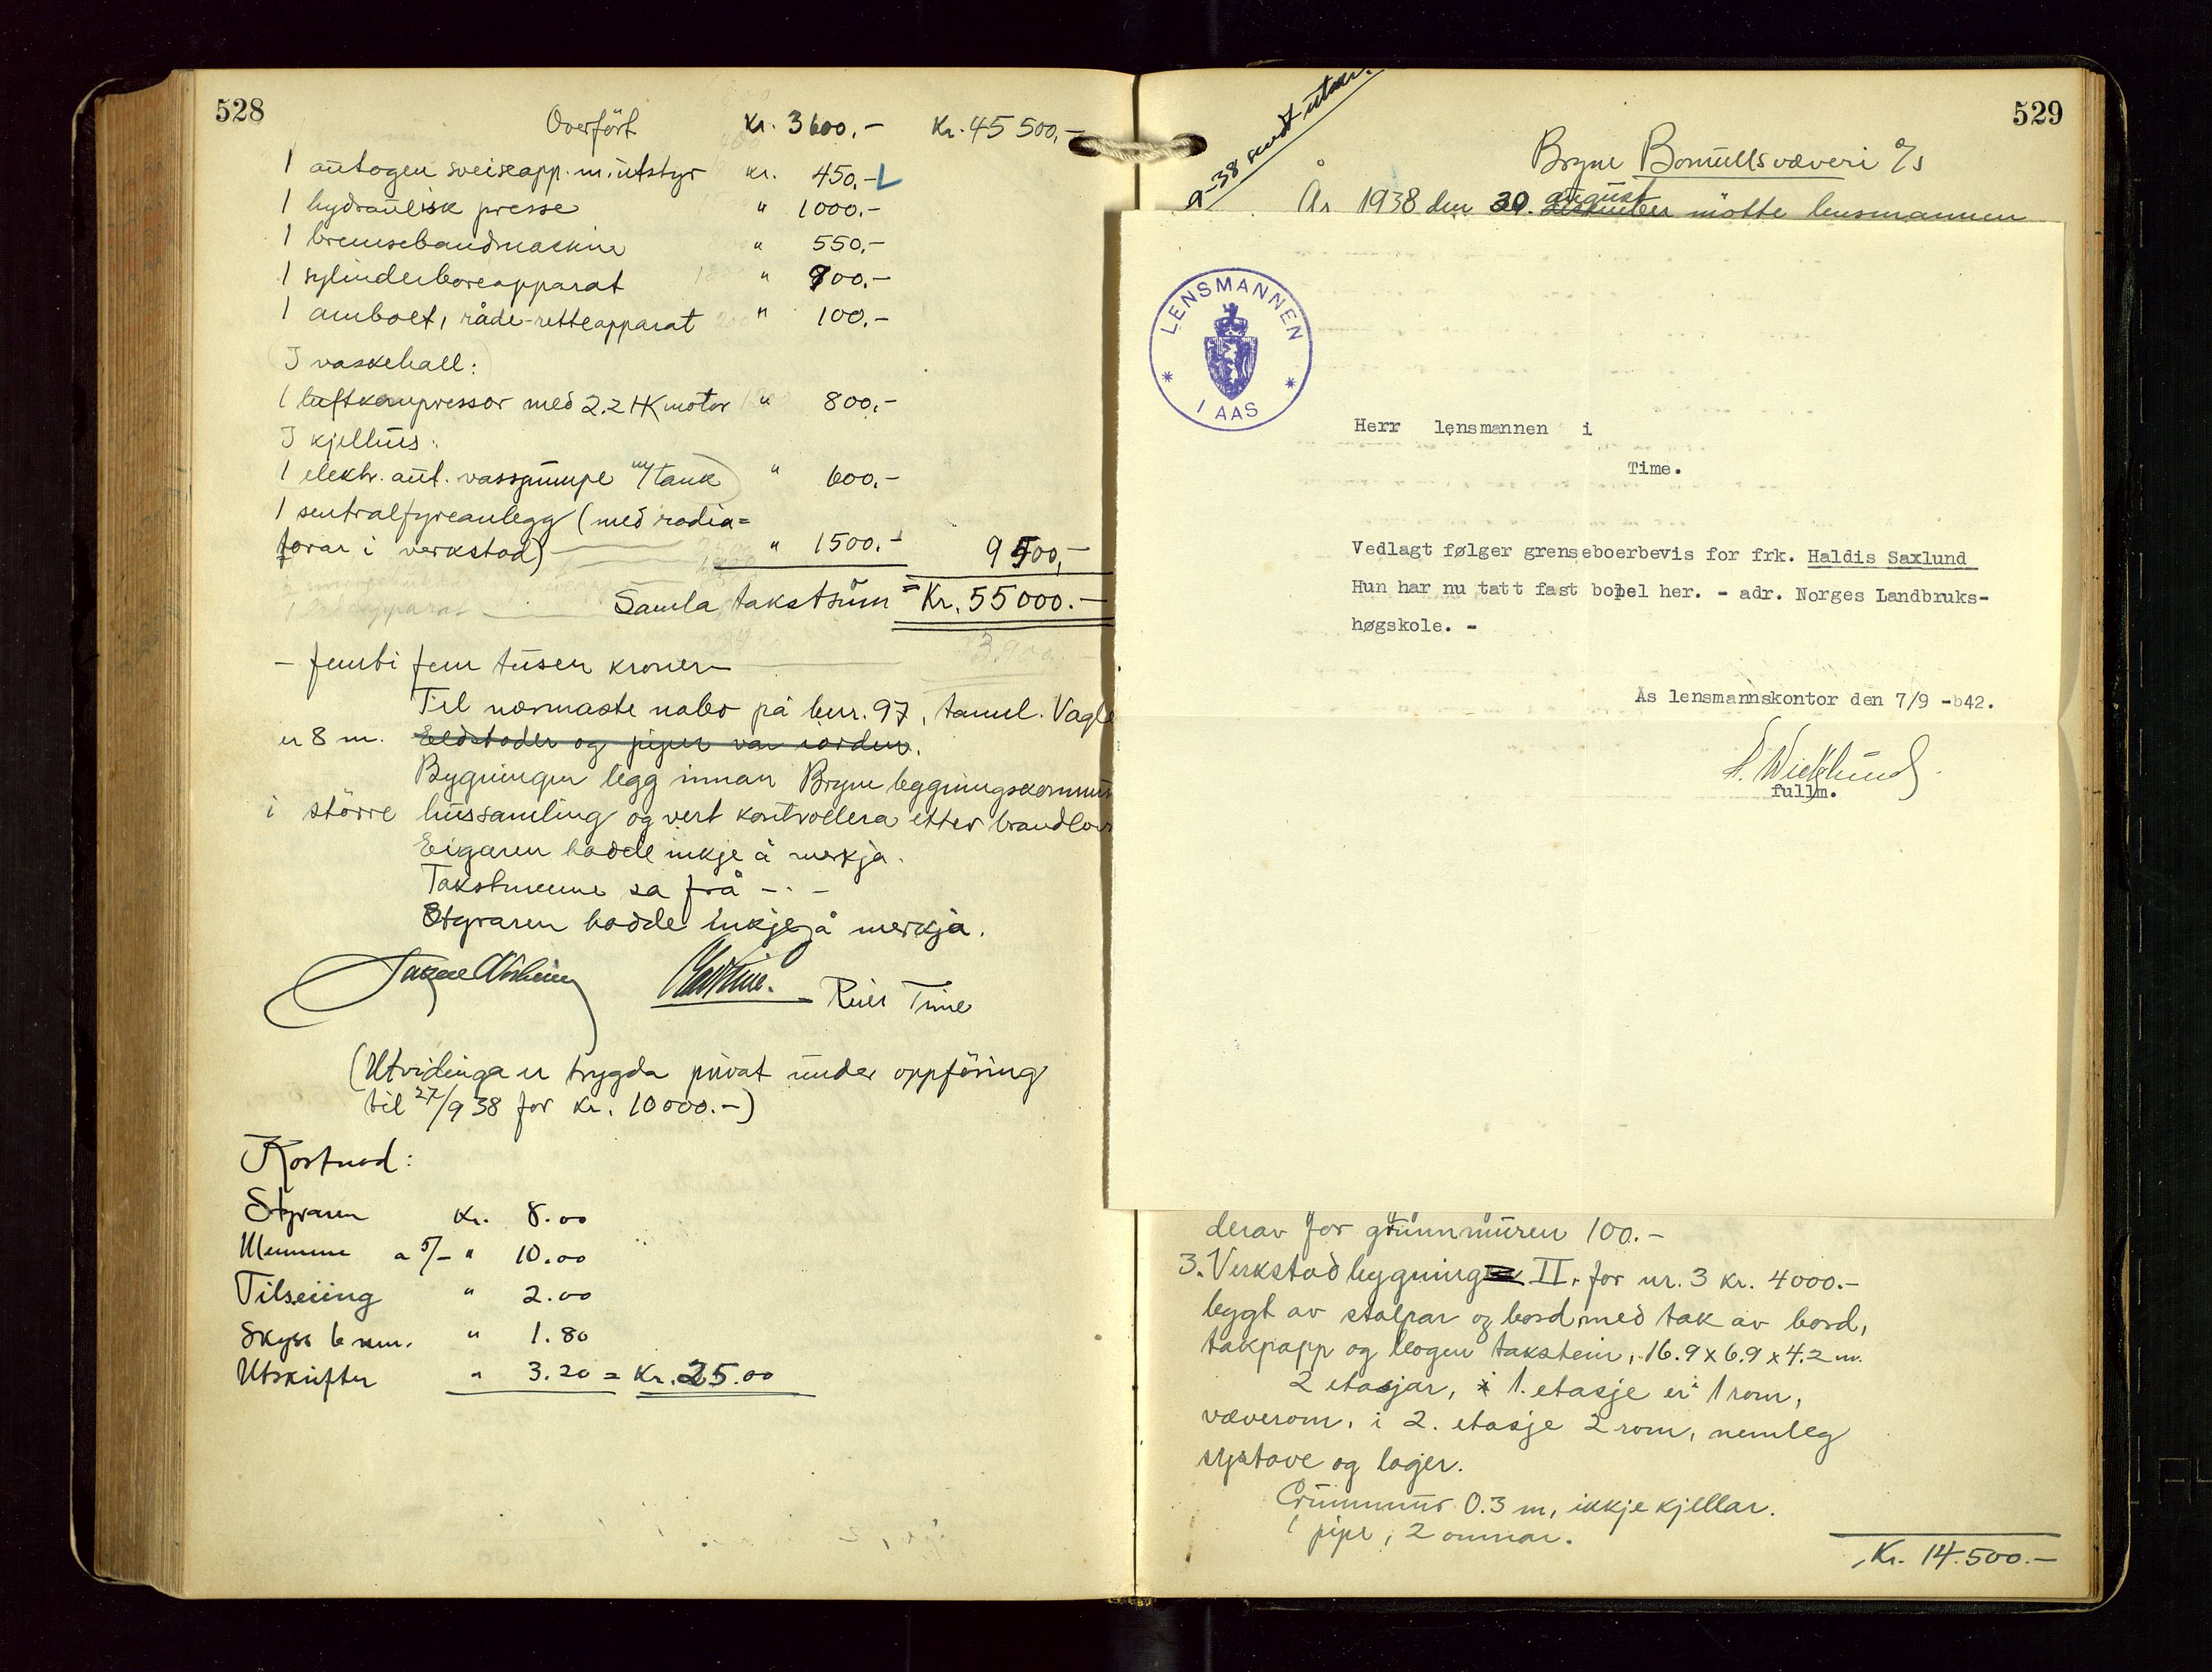 528
Overfört Kr. 3600.- Kr. 45500.-
1 autogen sveiseapp. m. utstyr kr. 450.-
1 hydraulisk presse " 1000.-
1 bremsebandmaskine " 550.-
1 sylinderboreapparat " 900.-
1 ambolt, råde-retteapparat " 100.-
I vaskehall:
1 luftkompressor med 2.2 HK motor " 800.-
I kjellus:
1 elektr. aut. vasspumpe m/tank " 600.-
1 sentralfyreanlegg (med radia=
torar i verkstad) " 1500.- 9500.-
Samla takstsum = Kr. 55000.-
- femti fem tusen kroner -
Til nærmaste nabo på bnr. 97, Vagle
er 8 m. Eldstader og piper var i orden.
Bygningen legg innan Bryne bygningskommun
i större hussamling og vert kontrollera etter brandlov
Eigaren hadde inkje å merkja.
Takstmennene sa frå - . -
Styraren hadde inkje å merkja.
Reier Time
(Utvidinga er trygda privat under oppföring
til 27/9 38 for kr. 10000.-)
Kostnad:
Styraren Kr. 8.00
Mennene a 5/- " 10.00
Tilseiing " 2.00
Skyss 6 km. " 1.80
Utskrifter " 3.20 = Kr. 25.00
529
9-38 sendt utskr.
Bryne Bomullsvæveri A/S
År 1938 den 30. august møtte lensmannen
LENSMANNEN I AAS
Herr lensmannen i
Time.
Vedlagt følger grenseboerbevis for frk. Haldis Saxlund
Hun har nu tatt fast bopel her. - adr. Norges Landbruks-
høgskole. -
Ås lensmannskontor den 7/9 -42.
A. Wicklund
fullm.
derav for grunnmuren 100.-
3. Verkstadbygning II. for nr. 3 kr. 4000.-
bygt av stolpar og bord med tak av bord,
takpapp og bogen takstein, 16.9 x 6.9 x 4.2 m.
2 etasjar, i 1. etasje er 1 rom,
væverom, i 2. etasje 2 rom, nemleg
systove og lager.
Grunnmur 0.3 m, ikkje kjellar.
1 pipe, 2 omnar.
Kr. 14.500.-